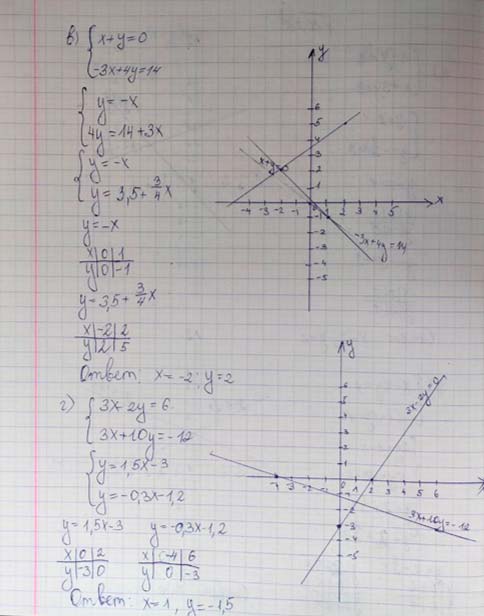 в) { x+y=0
-3x+4y=14
{ y=-x
4y=14+3x
{ y=-x
y=3,5+3/4x
y=-x
x|0|1
y|0|-1
y=3,5+3/4x
x|-2|2
y|2|5
Ответ: x=-2; y=2
y
6
5
4
3
2
1
x+y=0
-4 -3 -2 -1 0 1 2 3 4 5 x
-1
-2
-3
-4
-5
-3x+4y=14
г) { 3x-2y=6
3x+10y=-12
{ y=1,5x-3
y=-0,3x-1,2
y=1,5x-3 y=-0,3x-1,2
x|0|2 x|-4|6
y|-3|0 y|0|-3
Ответ: x=1, y=-1,5
y
6
5
4
3
2
1
3x-2y=0
-4 -3 -2 -1 0 1 2 3 4 5 6
-1
-2
-3
-4
-5
3x+10y=-12